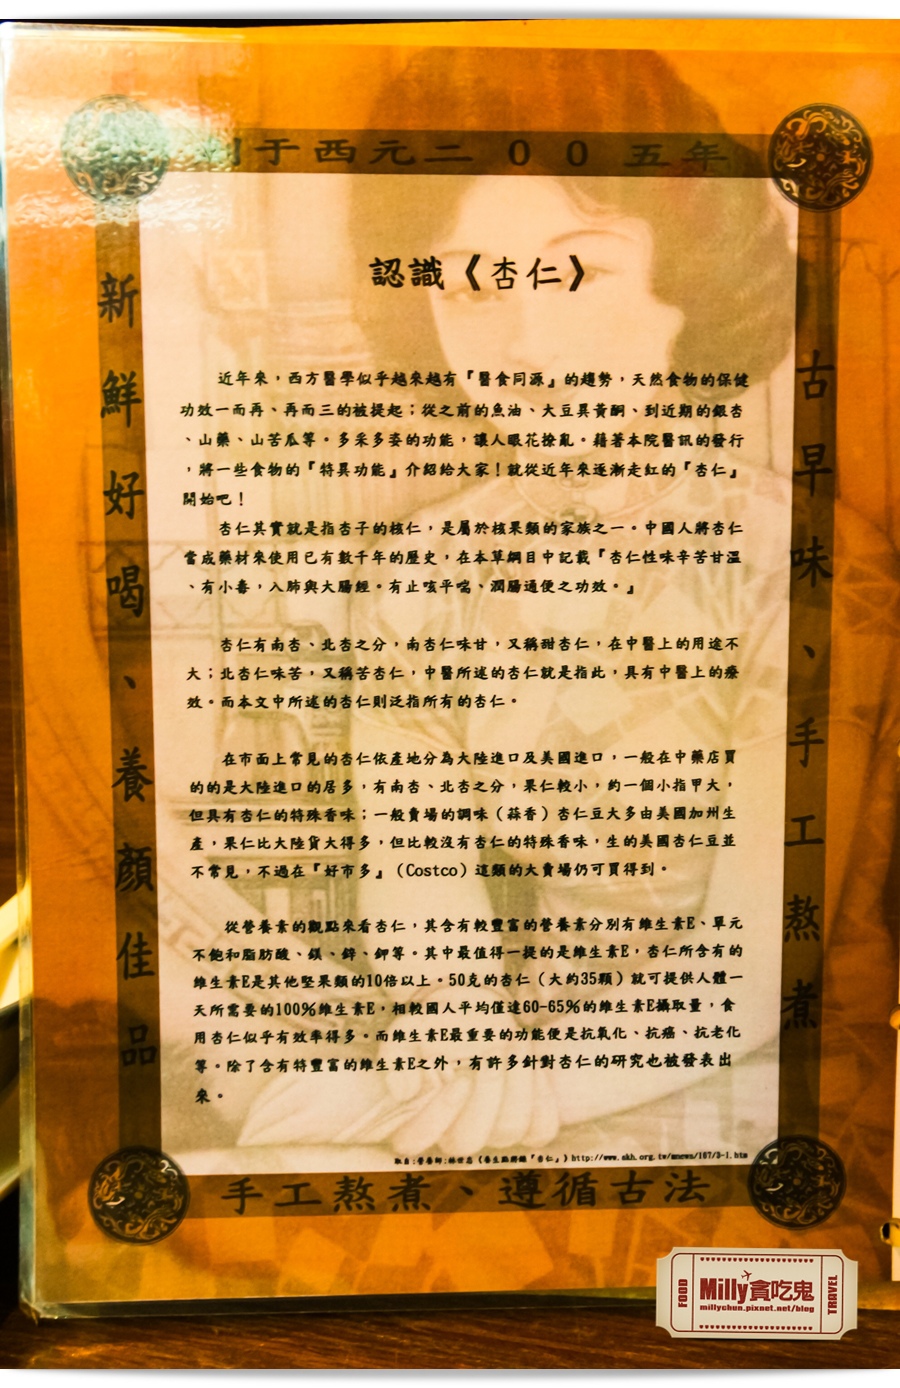 于西元二００五年
認識《杏仁》
近年來，西方醫學似乎越來越有『醫食同源』的趨勢，天然食物的保健
功效一而再、再而三的被提起；從之前的魚油、大豆異黃酮、到近期的銀杏
、山藥、山苦瓜等。多采多姿的功能，讓人眼花撩亂。藉著本院醫訊的發行
，將一些食物的『特異功能』介紹給大家！就從近年來逐漸走紅的『杏仁』
開始吧！
杏仁其實就是指杏子的核仁，是屬於核果類的家族之一。中國人將杏仁
當成藥材來使用已有數千年的歷史，在本草綱目中記載『杏仁性味辛苦甘溫
、有小毒，入肺與大腸經。有止咳平喘、潤腸通便之功效。』
杏仁有南杏、北杏之分，南杏仁味甘，又稱甜杏仁，在中醫上的用途不
大；北杏仁味苦，又稱苦杏仁，中醫所述的杏仁就是指此，具有中醫上的療
效。而本文中所述的杏仁則泛指所有的杏仁。
在市面上常見的杏仁依產地分為大陸進口及美國進口，一般在中藥店買
的的是大陸進口的居多，有南杏、北杏之分，果仁較小，約一個小指甲大，
但具有杏仁的特殊香味；一般賣場的調味（蒜香）杏仁豆大多由美國加州生
產，果仁比大陸貨大得多，但比較沒有杏仁的特殊香味，生的美國杏仁豆並
不常見，不過在『好市多』（Costco）這類的大賣場仍可買得到。
從營養素的觀點來看杏仁，其含有較豐富的營養素分別有維生素E、單元
不飽和脂肪酸、鎂、鋅、鉀等。其中最值得一提的是維生素E，杏仁所含有的
維生素E是其他堅果類的10倍以上。50克的杏仁（大約35顆）就可提供人體一
天所需要的100%維生素E，相較國人平均僅達60-65%的維生素E攝取量，食
用杏仁似乎有效率得多。而維生素E最重要的功能便是抗氧化、抗癌、抗老化
等。除了含有特豐富的維生素E之外，有許多針對杏仁的研究也被發表出
來。
取自:營養師:林世忠（養生點將錄『杏仁』）http://www.skh.org.tw/mnews/167/3-1.htm
古早味、手工熬煮
新鮮好喝、養顏佳品
手工熬煮、遵循古法
FOOD
Milly貪吃鬼
millychun.pixnet.net/blog
TRAVEL